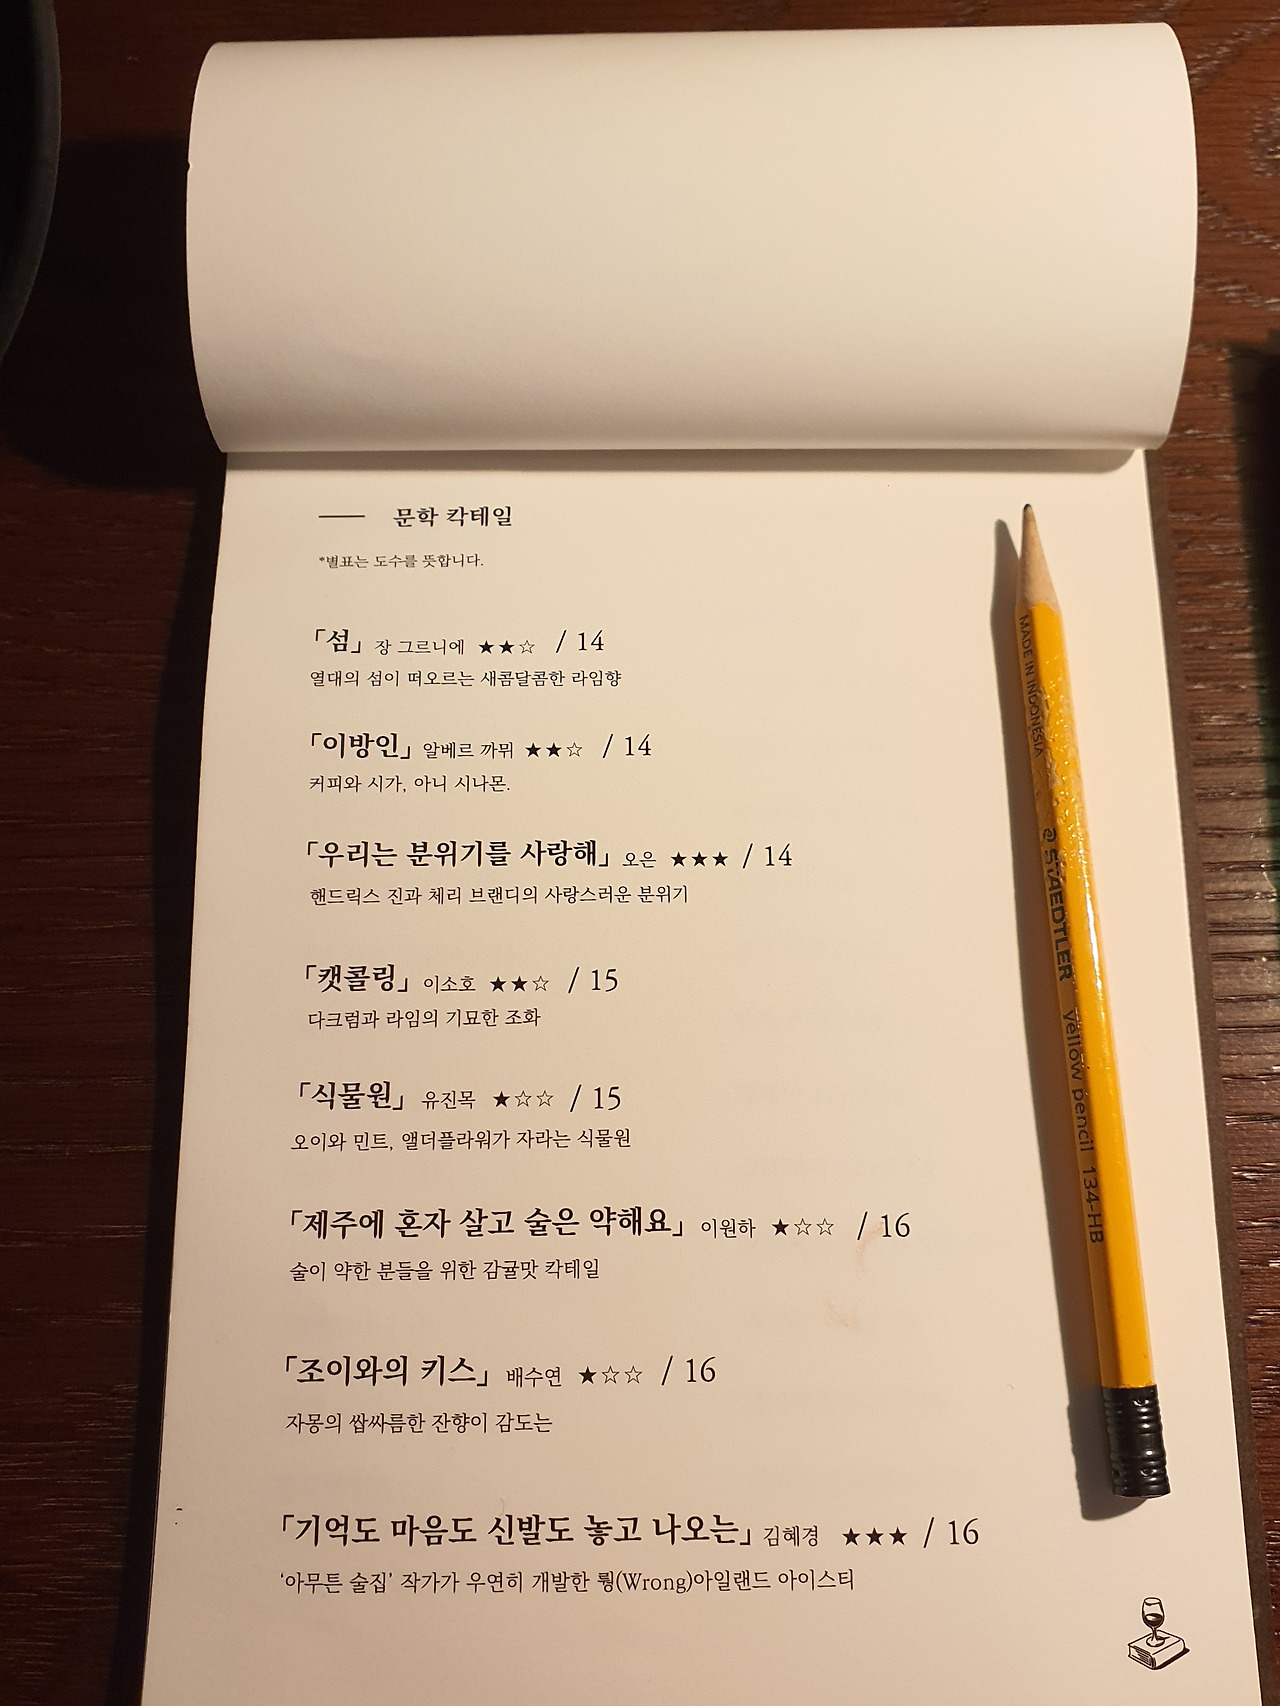 문학 칵테일
*별표는 도수를 뜻합니다.
「섬」 장 그르니에 ★★☆ / 14
열대의 섬이 떠오르는 새콤달콤한 라임향
「이방인」 알베르 까뮈 ★★☆ / 14
커피와 시가, 아니 시나몬.
「우리는 분위기를 사랑해」 오은 ★★★ / 14
핸드릭스 진과 체리 브랜디의 사랑스러운 분위기
「캣콜링」 이소호 ★★☆ / 15
다크럼과 라임의 기묘한 조화
「식물원」 유진목 ★☆☆ / 15
오이와 민트, 앨더플라워가 자라는 식물원
「제주에 혼자 살고 술은 약해요」 이원하 ★☆☆ / 16
술이 약한 분들을 위한 감귤맛 칵테일
「조이와의 키스」 배수연 ★☆☆ / 16
자몽의 쌉싸름한 잔향이 감도는
「기억도 마음도 신발도 놓고 나오는」 김혜경 ★★★ / 16
'아무튼 술집' 작가가 우연히 개발한 륑(Wrong)아일랜드 아이스티
MADE IN INDONESIA STAEDTLER yellow pencil 134-HB